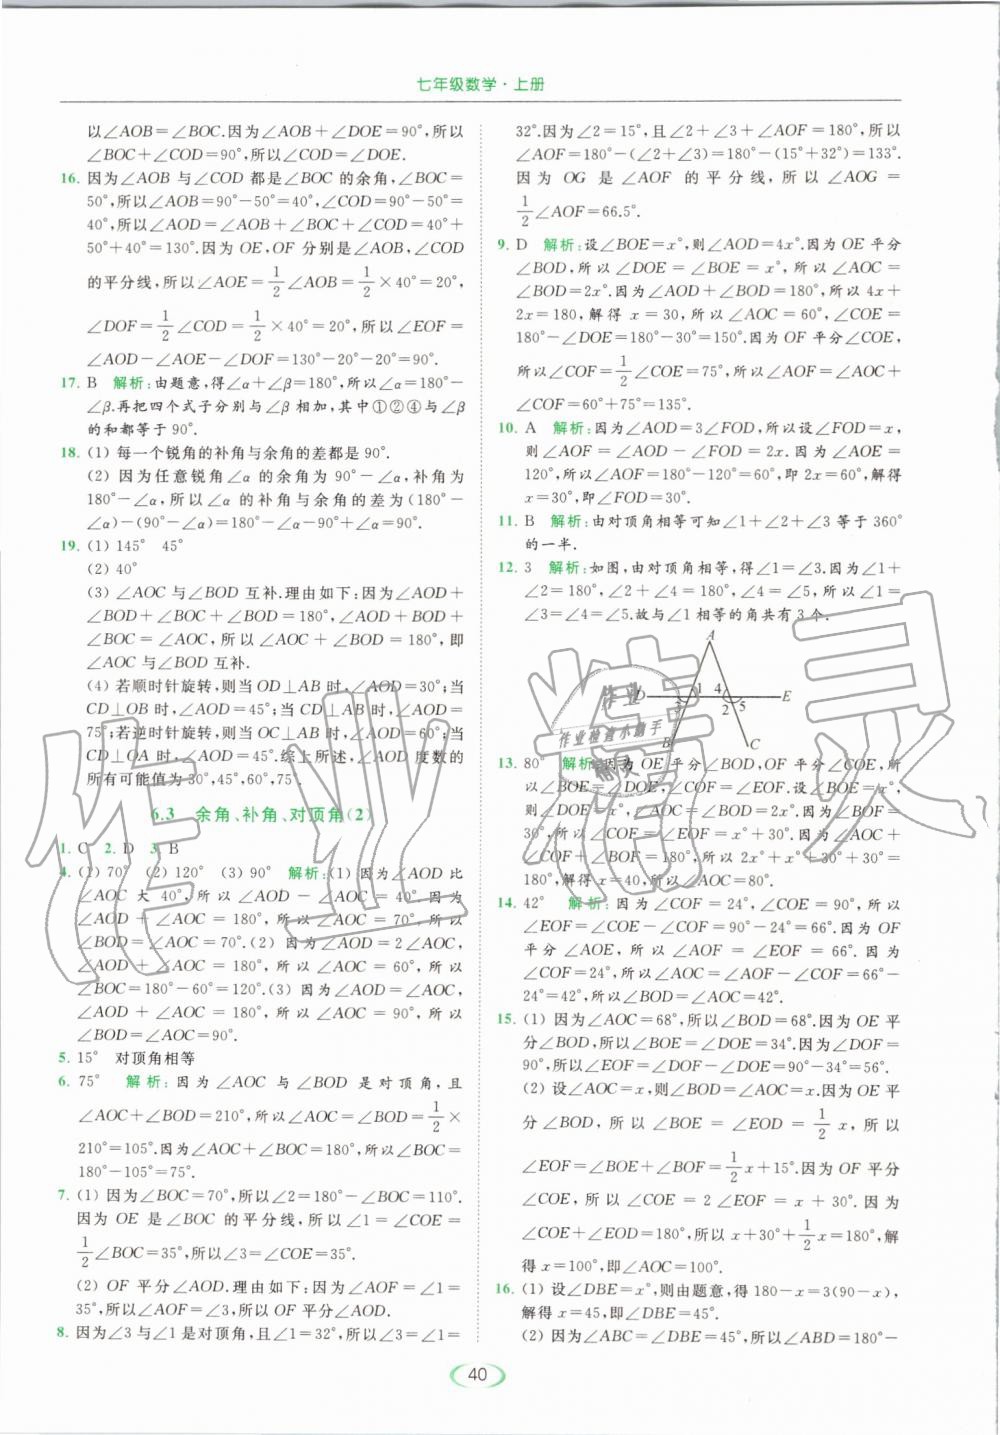 七年级数学·上册
以∠AOB=∠BOC.因为∠AOB+∠DOE=90°,所以
∠BOC+∠COD=90°,所以∠COD=∠DOE.
16. 因为∠AOB 与∠COD 都是∠BOC 的余角,∠BOC=
50°,所以∠AOB=90°-50°=40°,∠COD=90°-50°=
40°,所以∠AOD=∠AOB+∠BOC+∠COD=40°+
50°+40°=130°.因为 OE,OF 分别是∠AOB,∠COD
的平分线,所以∠AOE=1/2∠AOB=1/2×40°=20°,
∠DOF=1/2∠COD=1/2×40°=20°,所以∠EOF=
∠AOD-∠AOE-∠DOF=130°-20°-20°=90°.
17. B 解析:由题意,得∠α+∠β=180°,所以∠α=180°-
∠β.再把四个式子分别与∠β 相加,其中①②④与∠β
的和都等于 90°.
18. (1) 每一个锐角的补角与余角的差都是 90°.
(2) 因为任意锐角∠α 的余角为 90°-∠α,补角为
180°-∠α,所以∠α 的补角与余角的差为(180°-
∠α)-(90°-∠α)=180°-∠α-90°+∠α=90°.
19. (1) 145° 45°
(2) 40°
(3) ∠AOC 与∠BOD 互补.理由如下:因为∠AOD+
∠BOD+∠BOC+∠BOD=180°,∠AOD+BOD+
∠BOC=∠AOC,所以∠AOC+∠BOD=180°,即
∠AOC 与∠BOD 互补.
(4) 若顺时针旋转,则当 OD⊥AB 时,∠AOD=30°;当
CD⊥OB 时,∠AOD=45°;当 CD⊥AB 时,∠AOD=
75°;若逆时针旋转,则当 OC⊥AB 时,∠AOD=60°;当
CD⊥OA 时,∠AOD=45°.综上所述,∠AOD 度数的
所有可能值为 30°,45°,60°,75°.
6.3 余角、补角、对顶角(2)
1. C 2. D 3. B
4. (1) 70° (2) 120° (3) 90° 解析:(1) 因为∠AOD 比
∠AOC 大 40°,所以∠AOD-∠AOC=40°.因为
∠AOD+∠AOC=180°,所以∠AOC=70°.所以
∠BOD=∠AOC=70°.(2) 因为∠AOD=2∠AOC,
∠AOD+∠AOC=180°,所以∠AOC=60°,所以
∠BOC=180°-60°=120°.(3) 因为∠AOD=∠AOC,
∠AOD+∠AOC=180°,所以∠AOC=90°,所以
∠BOD=∠AOC=90°.
5. 15° 对顶角相等
6. 75° 解析:因为∠AOC 与∠BOD 是对顶角,且
∠AOC+∠BOD=210°,所以∠AOC=∠BOD=1/2×
210°=105°.因为∠AOC+∠BOC=180°,所以∠BOC=
180°-105°=75°.
7. (1) 因为∠BOC=70°,所以∠2=180°-∠BOC=110°.
因为 OE 是∠BOC 的平分线,所以∠1=∠COE=
1/2∠BOC=35°,所以∠3=∠COE=35°.
(2) OF 平分∠AOD.理由如下:因为∠AOF=∠1=
35°,所以∠AOF=∠3,所以 OF 平分∠AOD.
8. 因为∠3 与∠1 是对顶角,且∠1=32°,所以∠3=∠1=
32°.因为∠2=15°,且∠2+∠3+∠AOF=180°,所以
∠AOF=180°-(∠2+∠3)=180°-(15°+32°)=133°.
因为 OG 是∠AOF 的平分线,所以∠AOG=
1/2∠AOF=66.5°.
9. D 解析:设∠BOE=x°,则∠AOD=4x°.因为 OE 平分
∠BOD,所以∠DOE=∠BOE=x°,所以∠AOC=
∠BOD=2x°.因为∠AOD+∠BOD=180°,所以 4x+
2x=180,解得 x=30,所以∠AOC=60°,∠COE=
180°-∠DOE=180°-30°=150°.因为 OF 平分∠COE,
所以∠COF=1/2∠COE=75°,所以∠AOF=∠AOC+
∠COF=60°+75°=135°.
10. A 解析:因为∠AOD=3∠FOD,所以设∠FOD=x,
则∠AOF=∠AOD-∠FOD=2x.因为∠AOE=
120°,所以∠AOF=180°-120°=60°,即 2x=60°,解得
x=30°,即∠FOD=30°.
11. B 解析:由对顶角相等可知∠1+∠2+∠3 等于 360°
的一半.
12. 3 解析:如图,由对顶角相等,得∠1=∠3.因为∠1+
∠2=180°,∠2+∠4=180°,∠4=∠5,所以∠1=
∠3=∠4=∠5.故与∠1 相等的角共有 3 个.
A
D 3 1 4 2 5 E
B C
13. 80° 解析:因为 OE 平分∠BOD,OF 平分∠COE,所
以∠BOE=∠DOE,∠COF=∠EOF.设∠BOE=x°,
则∠DOE=x°,∠AOC=∠BOD=2x°.因为∠BOF=
30°,所以∠COF=∠EOF=x°+30°.因为∠AOC+
∠COF+∠BOF=180°,所以 2x°+x°+30°+30°=
180°,解得 x=40,所以∠AOC=80°.
14. 42° 解析:因为∠COF=24°,∠COE=90°,所以
∠EOF=∠COE-∠COF=90°-24°=66°.因为 OF
平分∠AOE,所以∠AOF=∠EOF=66°.因为
∠COF=24°,所以∠AOC=∠AOF-∠COF=66°-
24°=42°,所以∠BOD=∠AOC=42°.
15. (1) 因为∠AOC=68°,所以∠BOD=68°.因为 OE 平
分∠BOD,所以∠BOE=∠DOE=34°.因为∠DOF=
90°,所以∠EOF=∠DOF-∠DOE=90°-34°=56°.
(2) 设∠AOC=x,则∠BOD=∠AOC=x.因为 OE 平
分∠BOD,所以∠BOE=∠EOD=1/2x,所以
∠EOF=∠BOE+∠BOF=1/2x+15°.因为 OF 平分
∠COE,所以∠COE=2∠EOF=x+30°.因为
∠COE+∠EOD=180°,所以 x+30°+1/2x=180°,解
得 x=100°,即∠AOC=100°.
16. (1) 设∠DBE=x°,则由题意,得 180-x=3(90-x),
解得 x=45,即∠DBE=45°.
(2) 因为∠ABC=∠DBE=45°,所以∠ABD=180°-
40
作业精灵
作业
作业检查小助手
精灵